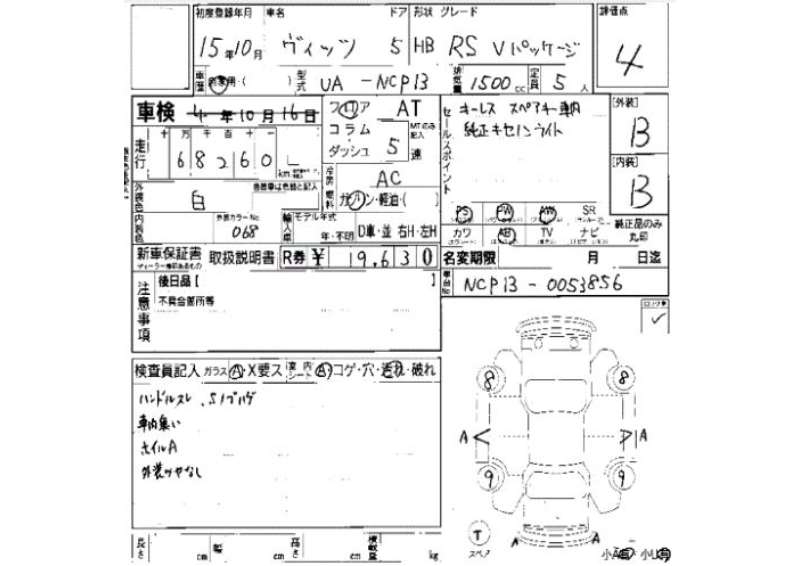 初度登録年月 車名 ドア 形状 グレード 評価点
15年10月 ヴィッツ 5 HB RS Vパッケージ 4
車歴 自家用・( ) 型式 UA - NCP13 排気量 1500 cc 定員 5 人
車検 4年10月16日 フロア AT キーレス スペアキー車内 [外装]
コラム MTのみ記入 純正キセノンライト B
走行 十 万 千 百 十 一 ダッシュ 5 速 セールスポイント [内装]
68260 km 冷房 AC B
外装色 白 燃料 ガソリン・軽油・( ) PS PW AW SR
内装色 外装カラーNo 068 輸入車 モデル年式 カワ AB TV ナビ 純正品のみ丸印
年・不明 D車・並 右H・左H
新車保証書 取扱説明書 R券 ¥ 19,630 名変期限 月 日迄
車台No NCP13-0053856
注意事項 後日品 [ ]
不具合箇所等
検査員記入 ガラス A・X要ス 室内 シート A コゲ・穴・汚れ・破れ
ハンドルスレ
車内臭い
ホイルA
外装ツヤなし
8 8
A A
9 9
T スペア A A
長さ cm 幅 cm 高さ cm 積載量 kg 小A有 小U有